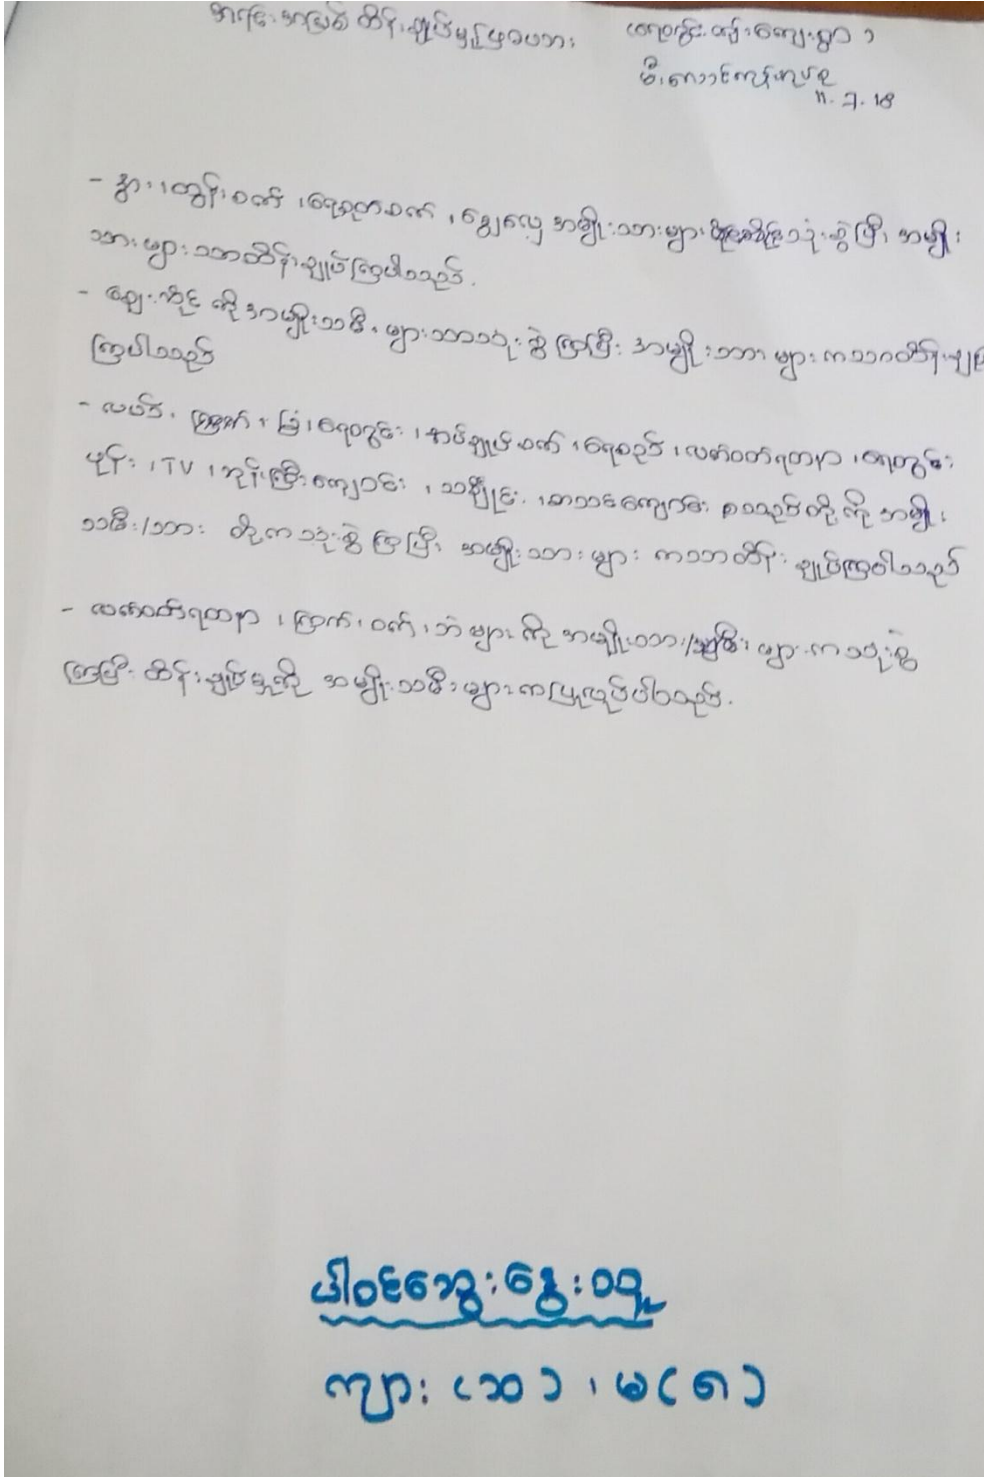 အရင်းအမြစ် ထိန်းချုပ်မှု ရေတွင်းကျေးရွာ
11.7.18
- နွား၊ ထွန်စက်၊ ရေစုတ်စက်၊ လှေ အမျိုးသားများ သုံးစွဲပြီး အမျိုး
သားများသာထိန်းချုပ်ကြပါသည်။
- ဈေးဆိုင် ကို အမျိုးသမီးများသာသုံးစွဲကြပြီး အမျိုးသားများကသာထိန်းချုပ်
ကြပါသည်
- လယ်၊ ခြံ၊ ရေတွင်း၊ အပ်ချုပ်စက်၊ ရေစည်၊ လက်ဝတ်ရတနာ၊ ရေတွင်း
ဖုန်း၊ TV၊ ဘုန်းကြီးကျောင်း၊ သင်္ချိုင်း၊ စာသင်ကျောင်း စသည်တို့ကို အမျိုး
သမီး/သား တို့က သုံးစွဲကြပြီး အမျိုးသားများ ကသာထိန်းချုပ်ကြပါသည်
- လက်ဝတ်ရတနာ၊ ကြက်၊ ဝက်၊ ဘဲများကို အမျိုးသား/သမီးများကသုံးစွဲ
ကြပြီး ထိန်းချုပ်မှုကို အမျိုးသမီးများကပြုလုပ်ပါသည်။
ပါဝင်ဆွေးနွေးသူ
ကျား (၁၁)၊ မ (၈)